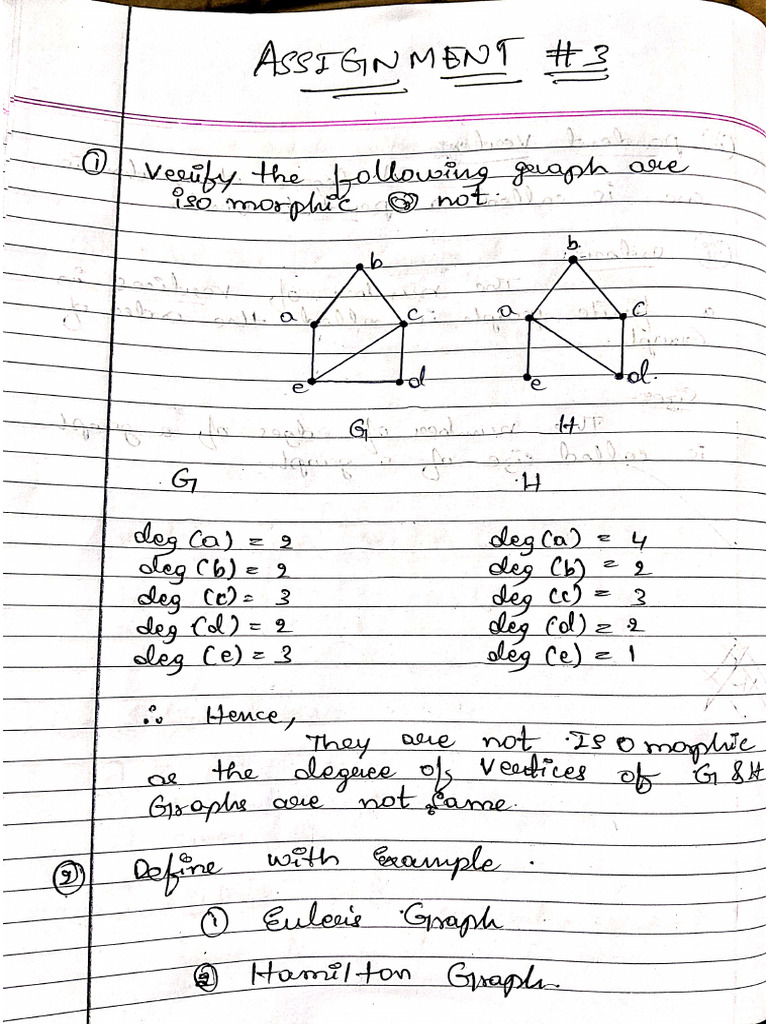 ASSIGNMENT #3
① Verify the following graph are
isomorphic or not.
b
b
a
c
a
c
e
d
e
d.
G
H
G
H
deg(a) = 2
deg(a) = 4
deg(b) = 2
deg(b) = 2
deg(c) = 3
deg(c) = 3
deg(d) = 2
deg(d) = 2
deg(e) = 3
deg(e) = 1
∴ Hence,
They are not Isomorphic
as the degree of Vertices of G & H
Graphs are not same.
② Define with Example.
① Euler's Graph
② Hamilton Graph.